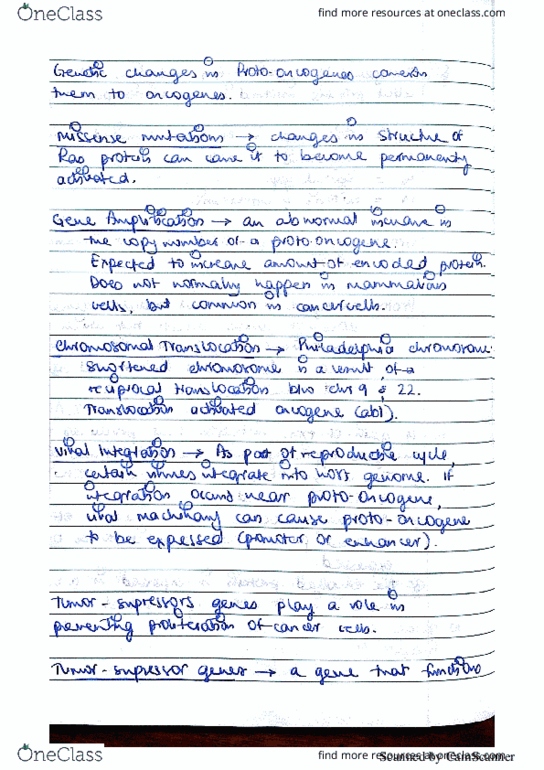 OneClass
find more resources at oneclass.com
Genetic changes in Proto-oncogenes converts
them to oncogenes.
Missense mutations → changes in structure of
Ras protein can cause it to become permanently
activated.
Gene Amplification → an abnormal increase in
the copy number of a proto-oncogene.
Expected to increase amount of encoded protein.
Does not normally happen in mammalians
cells, but common in cancer cells.
Chromosomal Translocation → Philadelphia chromosome.
shortened chromosome is a result of a
reciprocal translocation b/w chr 9 & 22.
Translocation activated oncogene (abl).
Viral Integration → As part of reproductive cycle,
certain viruses integrate into host genome. If
integration occurs near proto-oncogene,
viral machinary can cause proto-oncogene
to be expressed (promoter or enhancer).
Tumor-supressors genes play a role in
preventing proliferation of cancer cells.
Tumor-supressor genes → a gene that functions
OneClass
find more resources at oneclass.com
Scanned by CamScanner